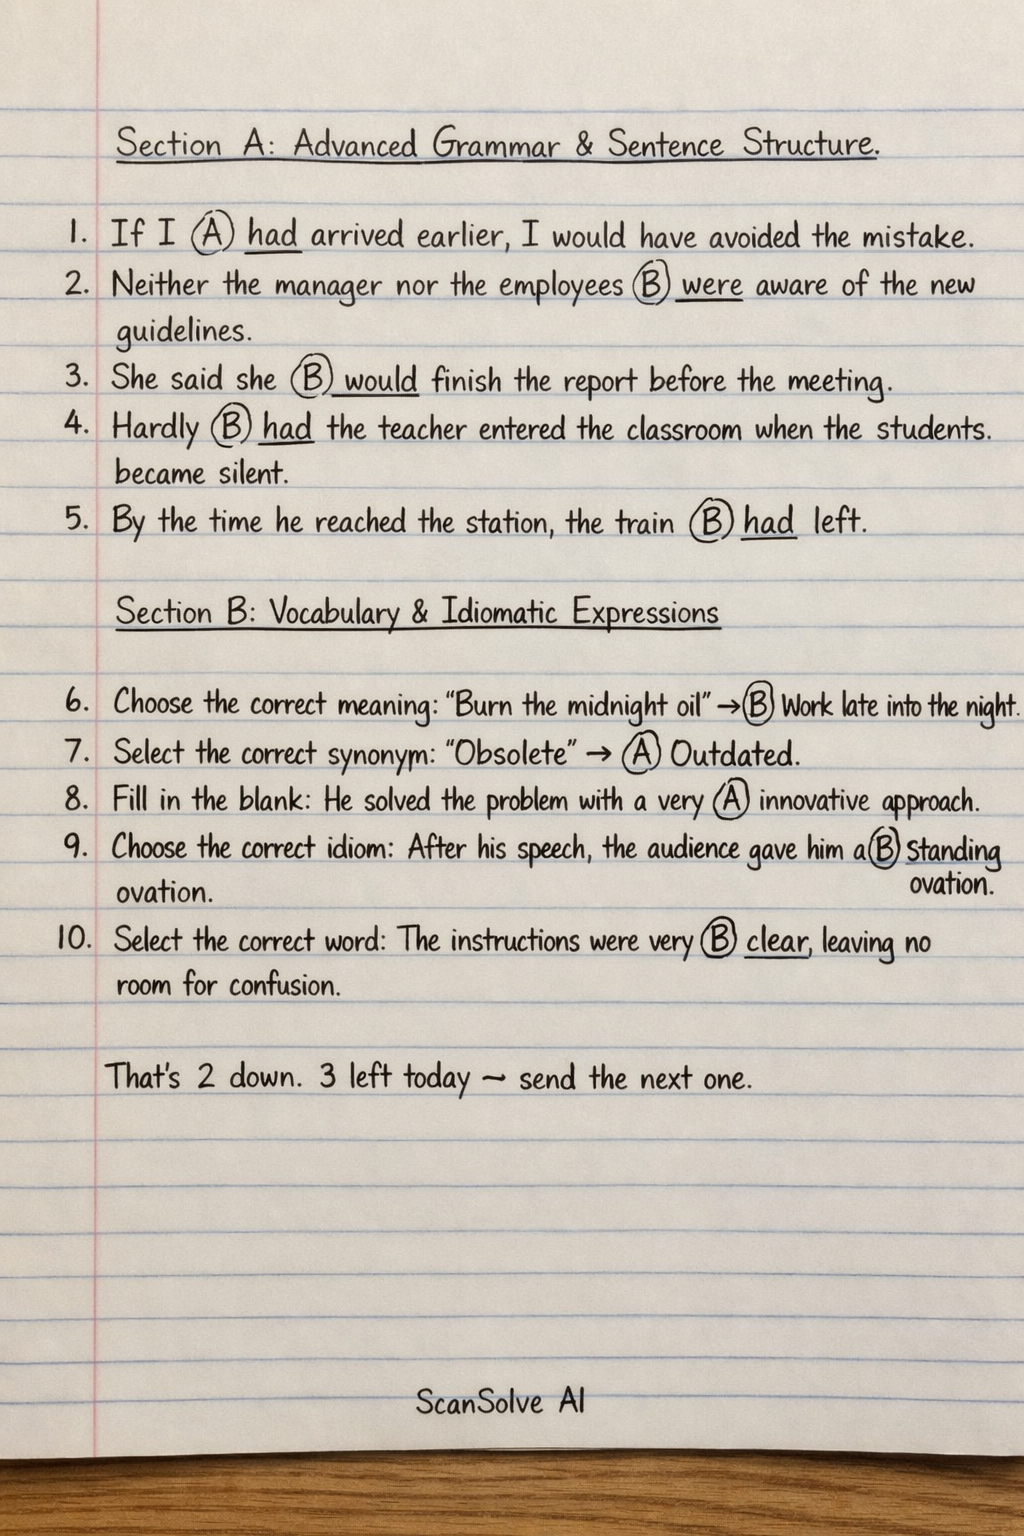 Section A: Advanced Grammar & Sentence Structure.
1. If I (A) had arrived earlier, I would have avoided the mistake.
2. Neither the manager nor the employees (B) were aware of the new
guidelines.
3. She said she (B) would finish the report before the meeting.
4. Hardly (B) had the teacher entered the classroom when the students.
became silent.
5. By the time he reached the station, the train (B) had left.
Section B: Vocabulary & Idiomatic Expressions
6. Choose the correct meaning: "Burn the midnight oil" → (B) Work late into the night.
7. Select the correct synonym: "Obsolete" → (A) Outdated.
8. Fill in the blank: He solved the problem with a very (A) innovative approach.
9. Choose the correct idiom: After his speech, the audience gave him a (B) standing
ovation.
ovation.
10. Select the correct word: The instructions were very (B) clear, leaving no
room for confusion.
That's 2 down. 3 left today ~ send the next one.
ScanSolve AI